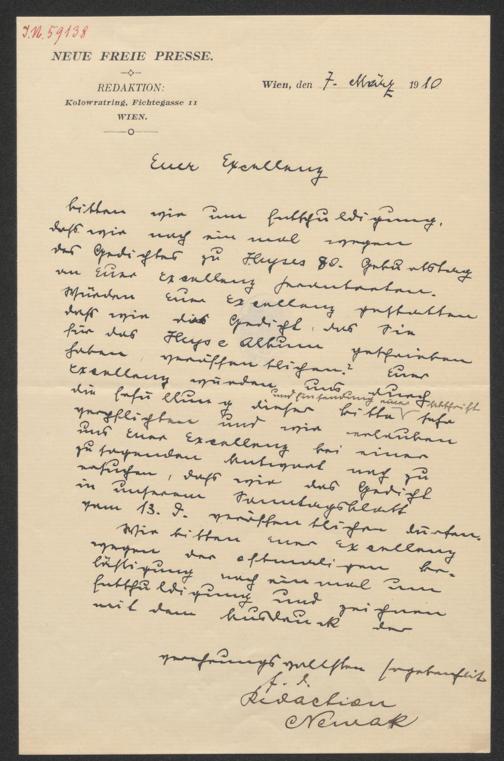 J.N. 59138
NEUE FREIE PRESSE.
REDAKTION:
Kolowratring, Fichtegasse 11
WIEN.
Wien, den 7. März 1910
Euer Exzellenz
bitten wir um Entschuldigung,
daß wir noch ein mal wegen
des Gedichtes zu Heyses 80. Geburtstag
an Euer Exzellenz herantreten.
Würden Euer Exzellenz gestatten
daß wir das Gedicht, das Sie
für das Heyse Album geschrieben
haben, veröffentlichen? Euer
Exzellenz würden uns durch
und Einsendung einer Abschrift
die Erfüllung dieser Bitte sehr
verpflichten und wir erlauben
uns Euer Exzellenz bei einer
zusagenden Antwort noch zu
ersuchen, daß wir das Gedicht
in unserem Sonntagsblatt
vom 13. d. veröffentlichen dürfen.
Wir bitten Euer Exzellenz
wegen der oftmaligen Be-
lästigung noch ein mal um
Entschuldigung und zeichnen
mit dem Ausdruck der
verehrungsvollsten Ergebenheit
f. d.
Redaction
Nowak